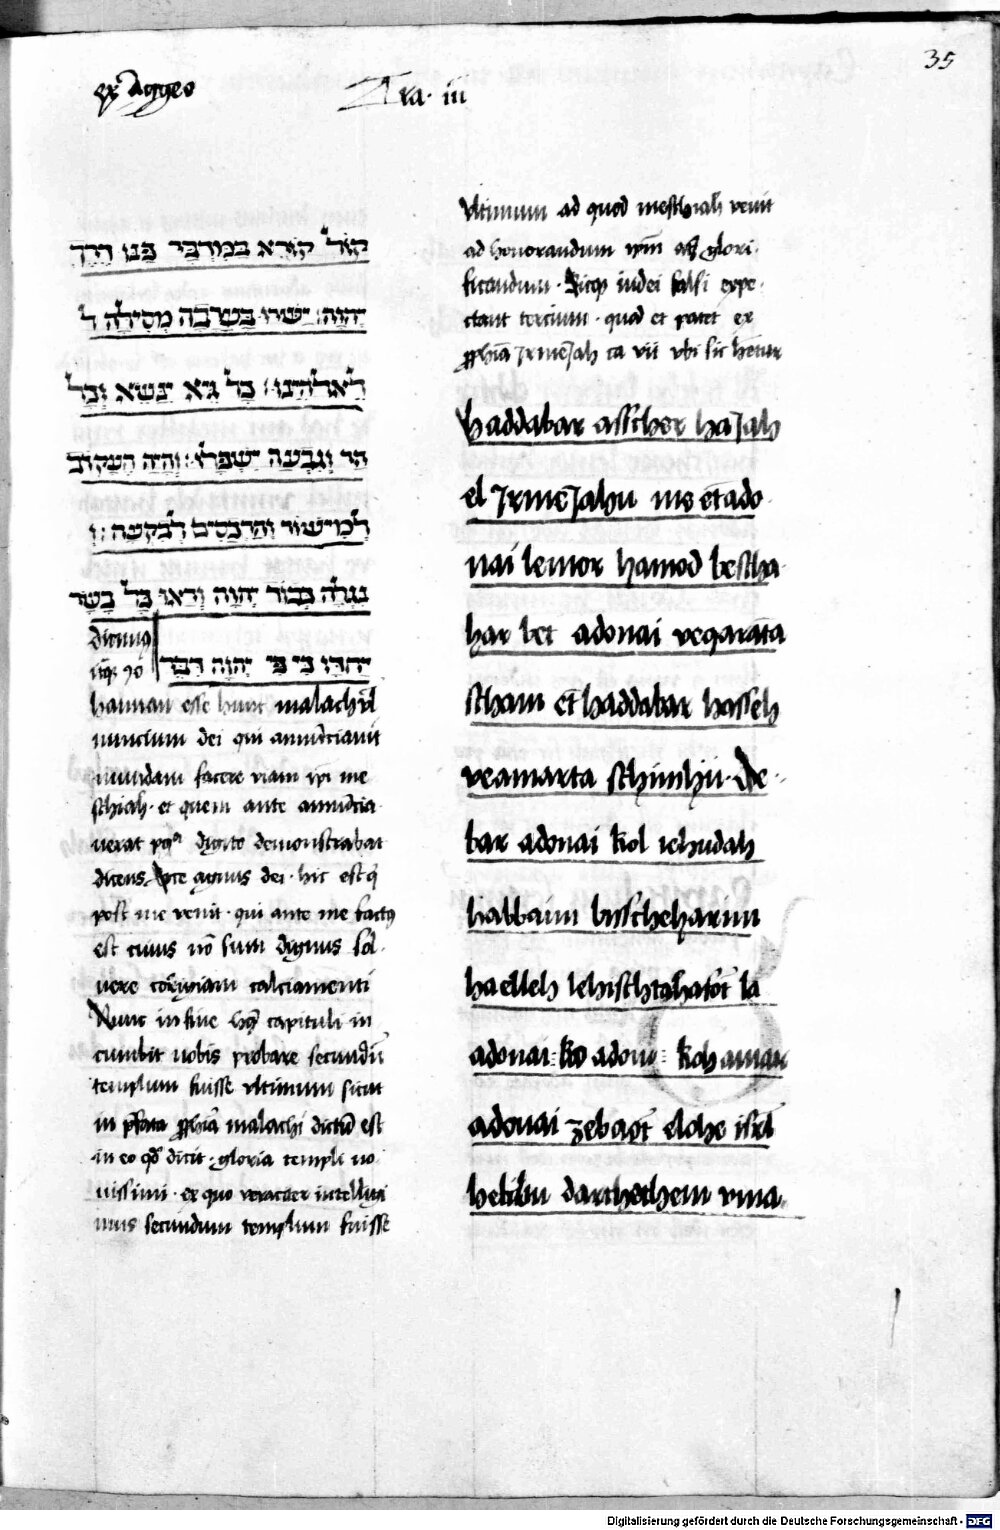 35
ex Aggeo
Tra. iii
קוֹל קוֹרֵא בַּמִּדְבָּר פַּנּוּ דֶּרֶךְ
יְהוָה׃ יַשְּׁרוּ בָּעֲרָבָה מְסִילָה ל
לֵאלֹהֵינוּ׃ כָּל גֶּיא יִנָּשֵׂא וְכָל
הַר וְגִבְעָה יִשְׁפָּלוּ׃ וְהָיָה הֶעָקוֹב
לְמִישׁוֹר וְהָרְכָסִים לְבִקְעָה׃ וְ
נִגְלָה כְּבוֹד יְהוָה וְרָאוּ כָל בָּשָׂר
יַחְדָּו כִּי פִּי יְהוָה דִּבֵּר
dicimus
itaque Jo
hannan esse hunc malach El
nuncium dei qui annunciavit
mundam facere viam xpi me
schiah. et quem ante annuncia
verat postea digito demonstrabat
dicens. Ecce agnus dei. hic est qui
post me venit. qui ante me factus
est cuius non sum dignus sol
vere corrigiam calciamenti
Nunc in fine huius capituli in
cumbit nobis probare secundum
templum fuisse ultimum sicut
in prefata prophetia malachi dictum est
in eo quod dicit. gloria templi no
vissimi. ex quo veraciter intelligi
mus secundum templum fuisse
ultimum ad quod meschiah venit
ad honorandum ipsum atque glori
ficandum. Sicque iudei falsi expe
ctant tercium. quod et patet ex
prophetia Jrmejah ca vii ubi sic habetur
haddabar asscher hajah
el Jrmejahu me et ado
nai lemor hamod bescha
har bet adonai veqarata
scham et haddabar hasseh
veamarta schimhu. de
bar adonai kol iehudah
habbaim bisscheharim
haelleh lehischtahafot la
adonai: ko adon: koh amar
adonai zebaot elohe isrl
hetibu darchethem uma
Digitalisierung gefördert durch die Deutsche Forschungsgemeinschaft - DFG